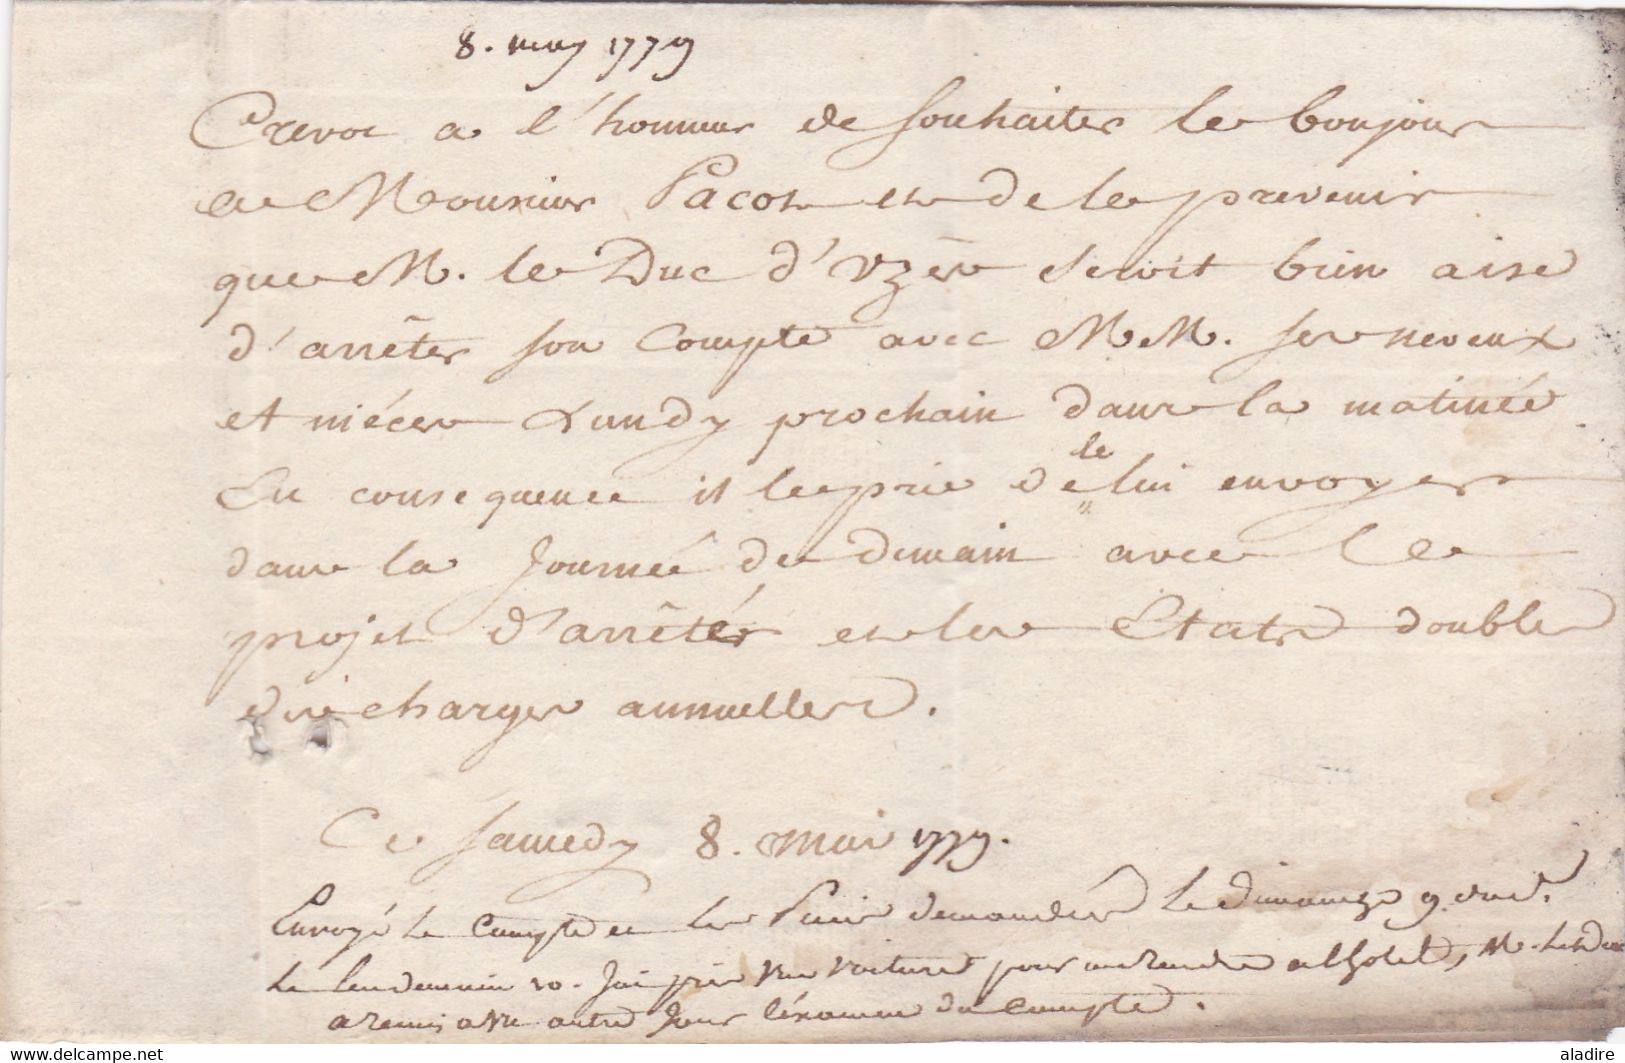 8. may 1779
a l'honneur de souhaiter le bonjour
a Monsieur Pacot et de le prevenir
que M. le Duc d'Uzès seroit bien aise
d'arrêter son Compte avec M.M. ses neveux
et niéces Lundy prochain dans la matinée
En consequence il le prie de le lui envoyer
dans la Journée de demain avec le
projet d'arrêté et les Etats doubles
des charges annuelles.
Ce Samedy 8. mai 1779.
Envoyé le Compte et les Pieces demandées le dimanche 9. dud.
Le lendemain 10. J'ai pris une voiture pour me rendre a l'hotel, M. le Duc
a remis a un autre Jour l'éxamen du Compte.
aladire
www.delcampe.com